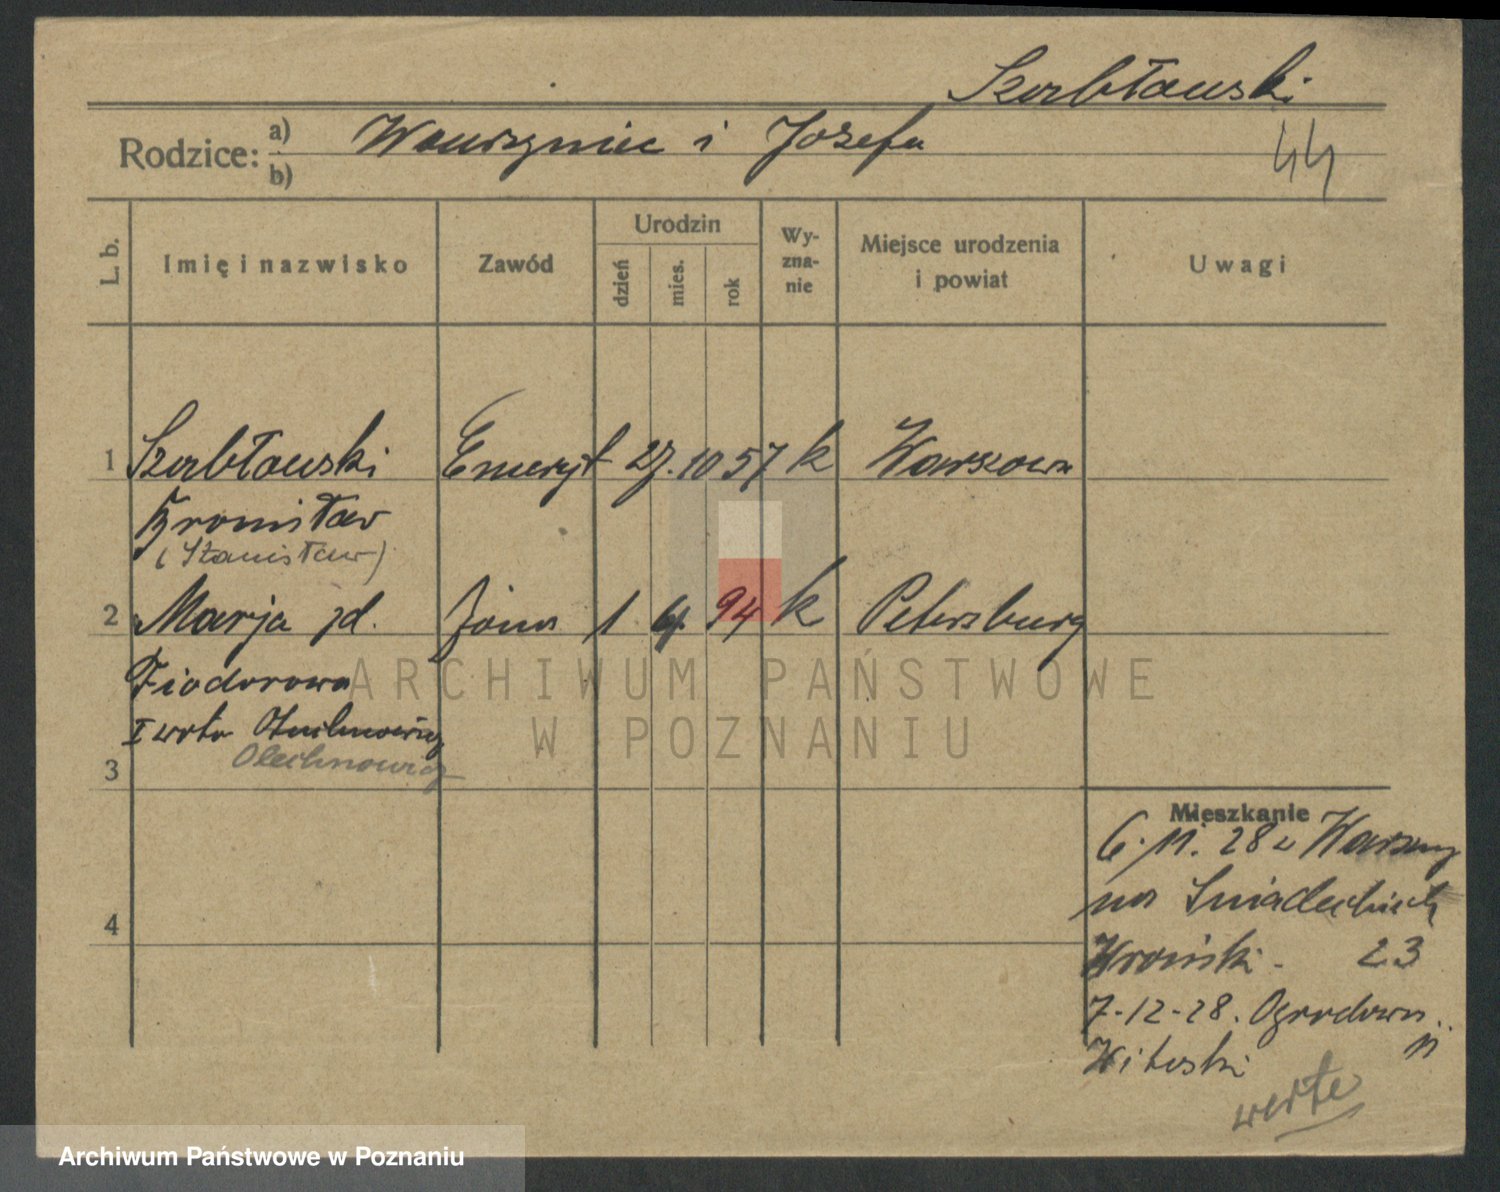 Szabłowski
Rodzice: a) Wawrzyniec i Józefa
b)
44
L. b. Imię i nazwisko Zawód Urodzin dzień mies. rok Wy-zna-nie Miejsce urodzenia i powiat Uwagi
1 Szabłowski Emeryt 27. 10 57 k Warszawa
Bronisław
(Stanisław)
2 Marja zd. żona 1 4. 94 k Petersburg
Fiodorowa
I voto
Olechnowicz
3
4
Mieszkanie
6. 11. 28 z Warszawy
na Śniadeckich
23
7-12-28. Ogrodowa
11
Witoski
verte
ARCHIWUM PAŃSTWOWE
W POZNANIU
Archiwum Państwowe w Poznaniu